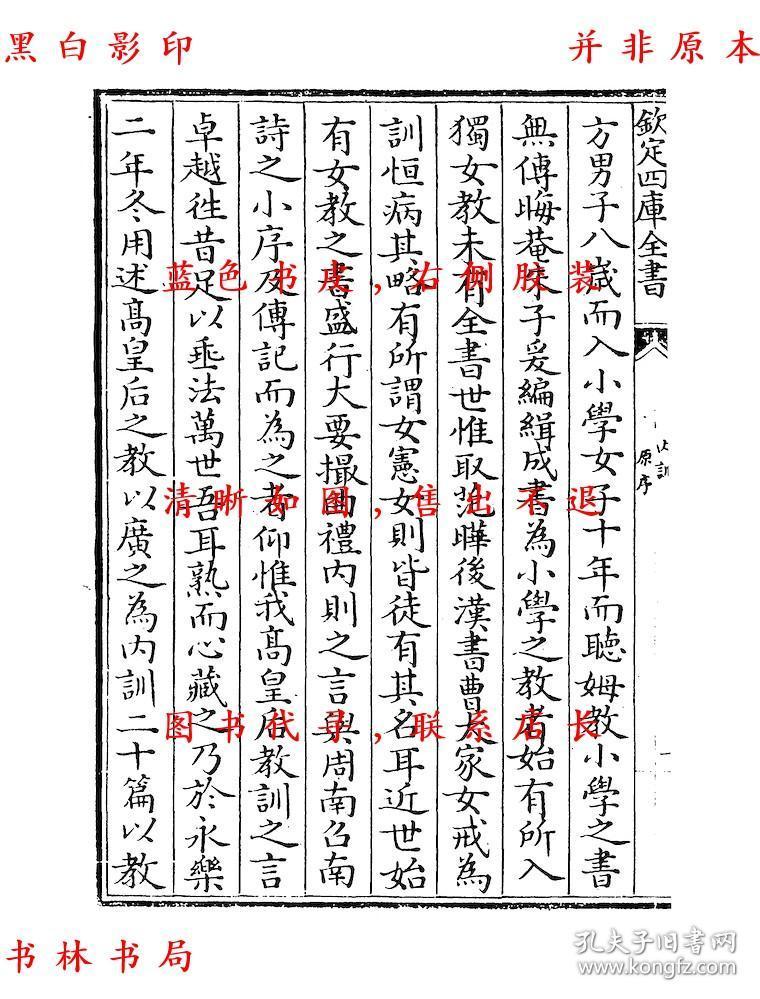 黑白影印
并非原本
欽定四庫全書
内訓
原序
方男子八歲而入小學女子十年而聽姆教小學之書
無傳晦菴朱子爰編緝成書為小學之教者始有所入
獨女教未有全書世惟取范曄後漢書曹大家女戒為
訓恒病其略有所謂女憲女則皆徒有其名耳近世始
有女教之書盛行大要撮曲禮内則之言與周南召南
詩之小序及傳記而為之者仰惟我髙皇后教訓之言
卓越往昔足以垂法萬世吾耳熟而心藏之乃於永樂
二年冬用述髙皇后之教以廣之為内訓二十篇以教
蓝色书皮，右侧胶装
清晰如图，售出不退
图书代寻，联系店长
书林书局
孔夫子旧书网
www.kongfz.com